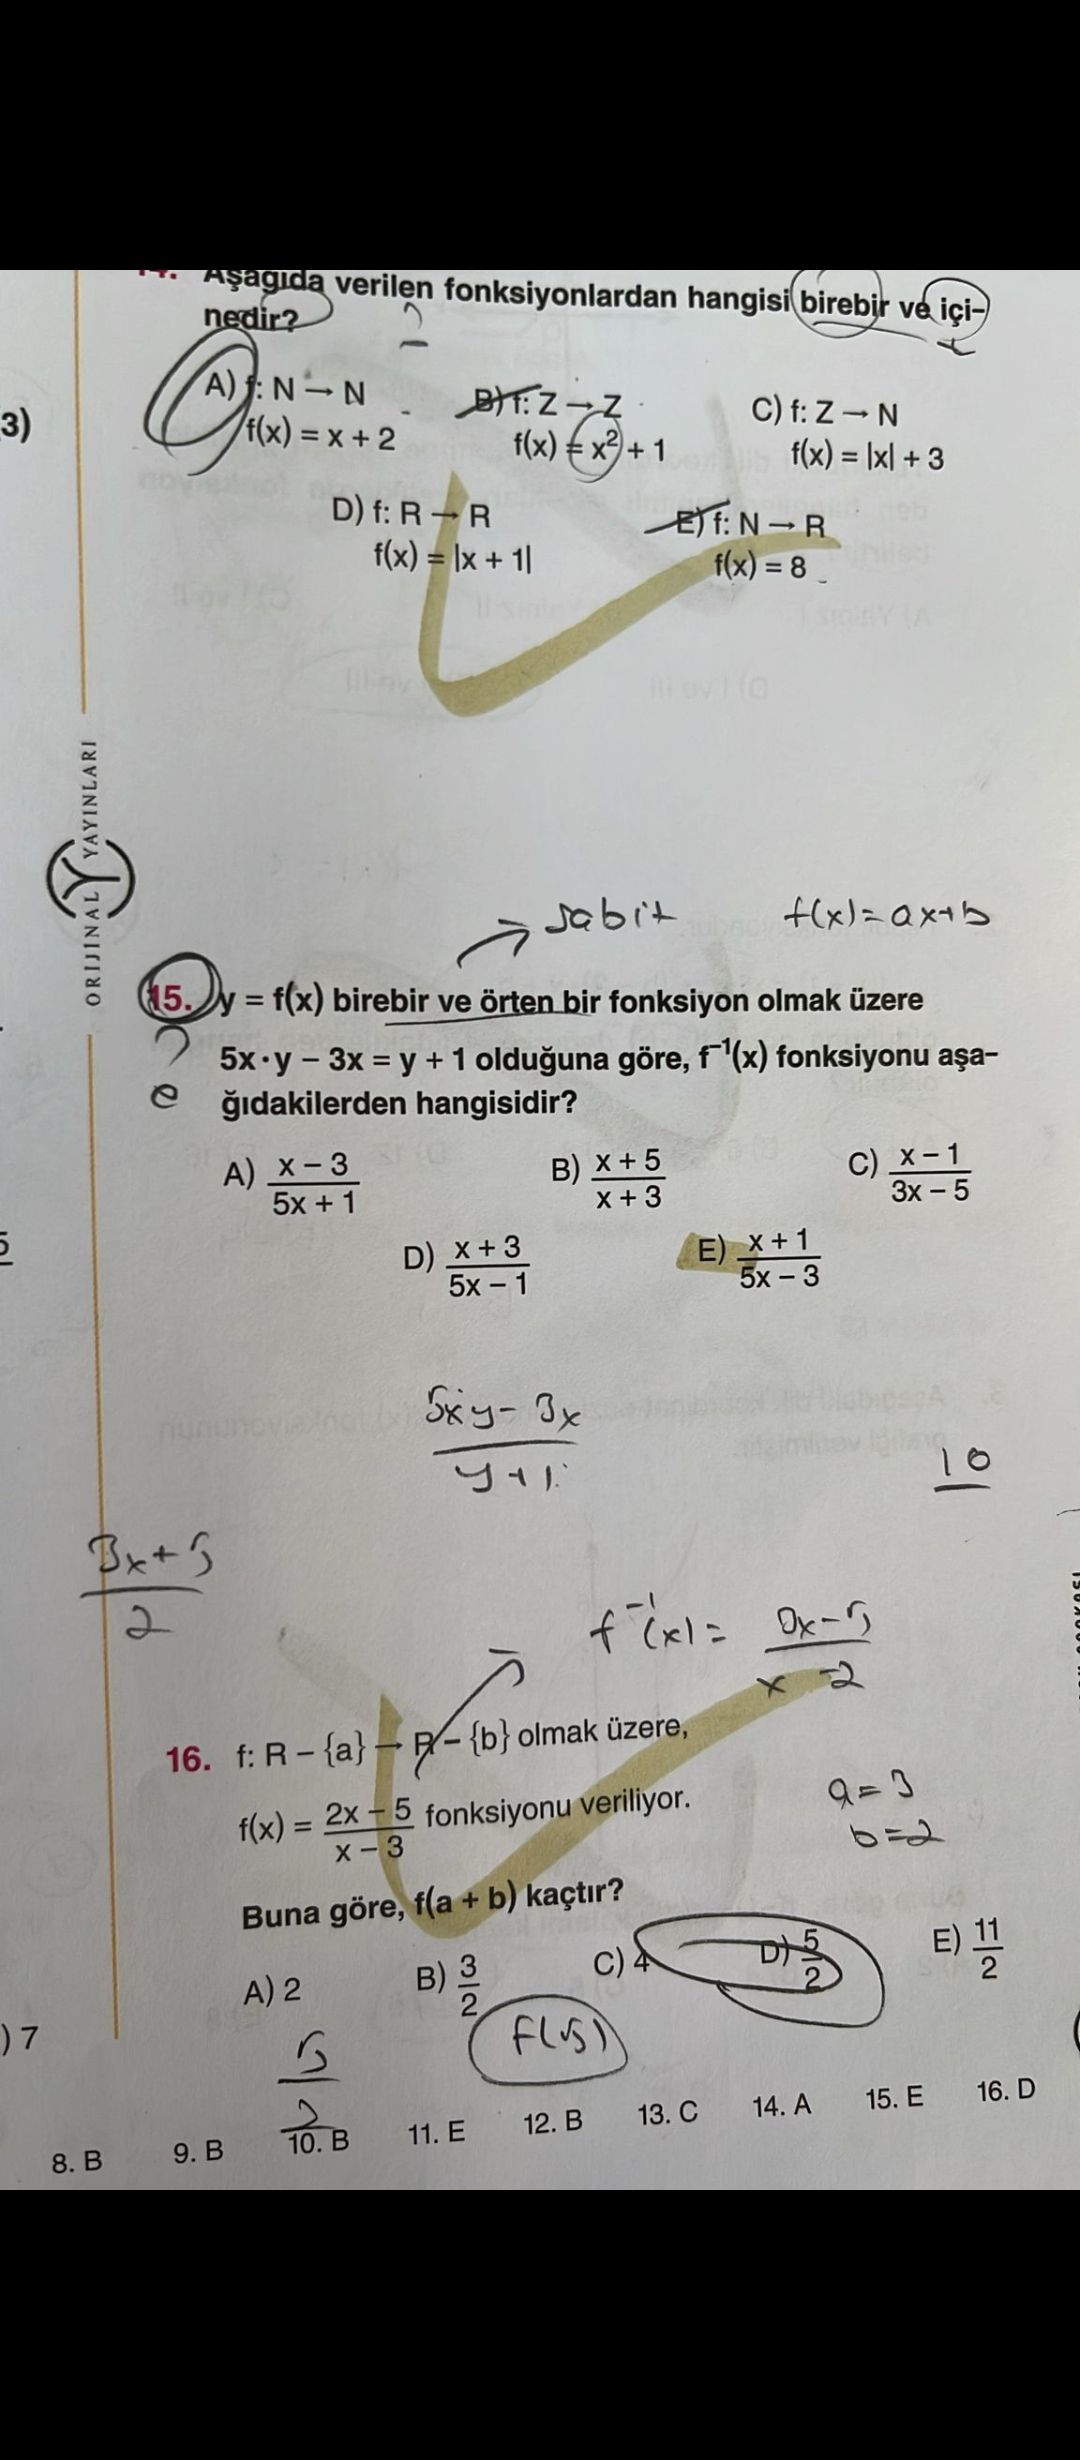 14. Aşağıda verilen fonksiyonlardan hangisi birebir ve içi-
nedir?
A) f: N → N
f(x) = x + 2
B) f: Z → Z
f(x) = x² + 1
C) f: Z → N
f(x) = |x| + 3
D) f: R → R
f(x) = |x + 1|
E) f: N → R
f(x) = 8
3)
ORİJİNAL YAYINLARI
sabit
f(x) = ax+b
15. y = f(x) birebir ve örten bir fonksiyon olmak üzere
5x·y – 3x = y + 1 olduğuna göre, f⁻¹(x) fonksiyonu aşa-
ğıdakilerden hangisidir?
A) (x – 3)/(5x + 1)
B) (x + 5)/(x + 3)
C) (x – 1)/(3x – 5)
D) (x + 3)/(5x – 1)
E) (x + 1)/(5x – 3)
5xy - 3x
y + 1
10
3x + 5
2
f⁻¹(x) =
x - 2
16. f: R – {a} → R – {b} olmak üzere,
f(x) = (2x – 5)/(x – 3) fonksiyonu veriliyor.
a = 3
b = 2
Buna göre, f(a + b) kaçtır?
A) 2
B) 3/2
C) 4
D) 5/2
E) 11/2
) 7
5
2
f(5)
8. B 9. B 10. B 11. E 12. B 13. C 14. A 15. E 16. D